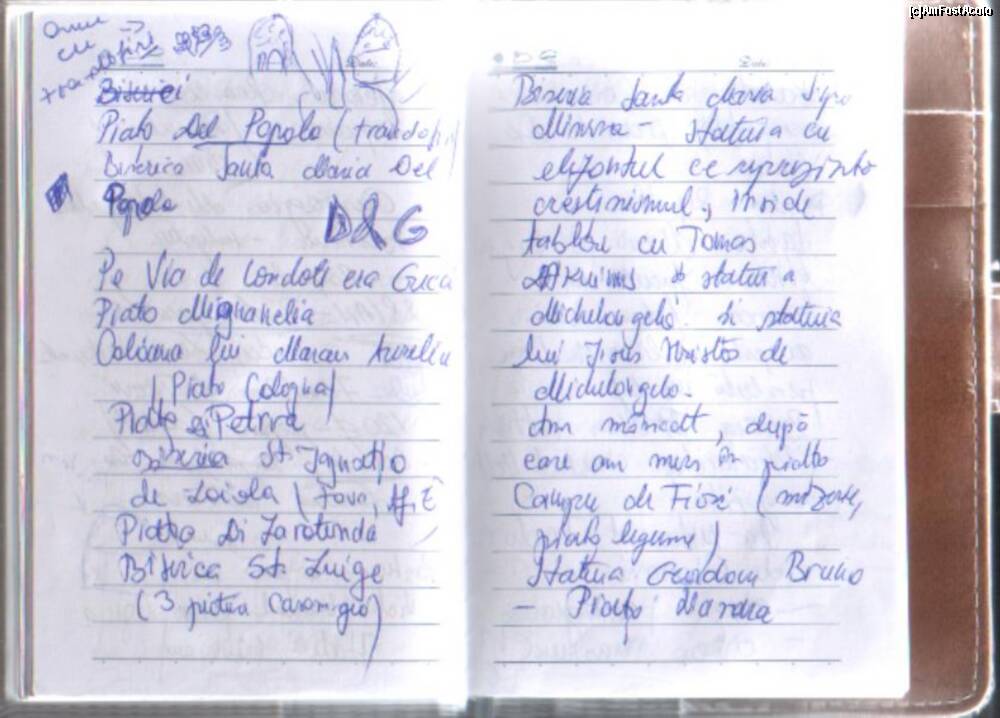 [c]AmFostAcolo
Omu
cu
trandafiri
Biserici
Piata Del Popolo (trandafiri
Biserica Santa Maria Del
Popolo
D&G
Pe Via de Condoti era Gucci
Piata Mignanelia
Coloana lui Marcu Aureliu
Piata Cologna)
Piatta di Petrra
biserica St. Ignatio
de Loiola (
Piatta Di La rotunda
Biserica St. Luige
(3 pictura Caravagio)
Date:
Biserica Santa Maria Supra
Minirva - Statuia cu
elefantul ce reprezinta
crestinismul., inside
tablou cu Tomas
statuia
Michelangelo. Si statuia
lui Jisus Hristos de
Michelangelo.
Am mancatt, după
care am mers în piatta
Campu di Fiori (
piata legume)
Statuia Geordano Bruno
- Piata